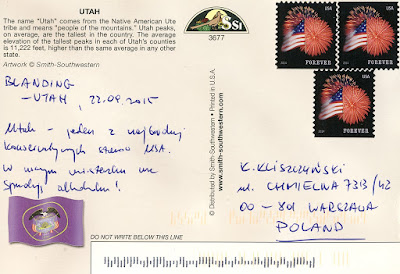 UTAH
The name "Utah" comes from the Native American Ute
tribe and means "people of the mountains." Utah peaks,
on average, are the tallest in the country. The average
elevation of the tallest peaks in each of Utah's counties
is 11,222 feet, higher than the same average in any other
state.
Artwork © Smith-Southwestern
SSI
3677
USA
FOREVER
USA
FOREVER
USA
FOREVER
BLANDING
- UTAH, 22.09.2015
Utah - jeden z najbardziej
konserwatywnych stanów USA.
W naszym miasteczku nie
spożyją alkoholu!
© Distributed by Smith-Southwestern • Printed in U.S.A.
www.smith-southwestern.com
K. KLISZCZYŃSKI
ul. CHMIELNA 73B/42
00-801 WARSZAWA
POLAND
DO NOT WRITE BELOW THIS LINE